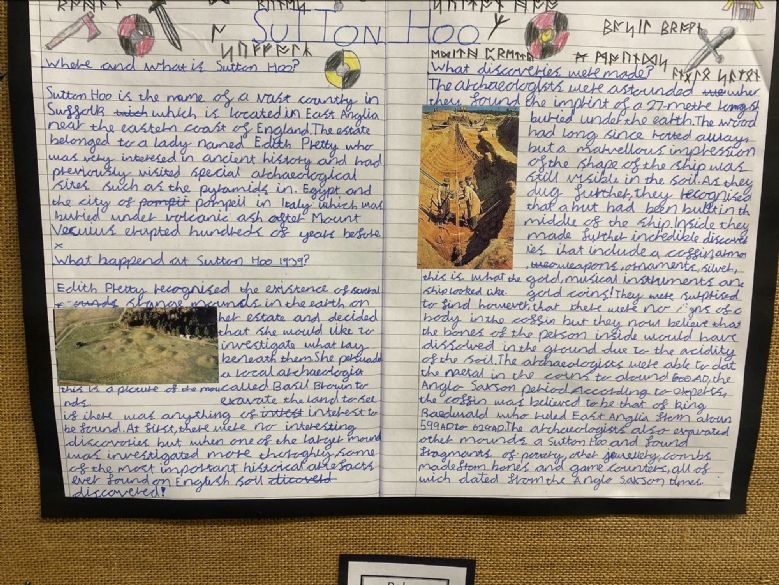 SUTTON HOO
Where and what is Sutton Hoo?
Sutton Hoo is the name of a vast country in
Suffolk which is located in East Anglia
near the eastern coast of England. The estate
belonged to a lady named Edith Pretty who
was very interesed in ancient history and had
previously visited special archaeological
sites such as the pyramids in Egypt and
the city of pompeii in Italy which was
buried under volcanic ash after Mount
Vesuvius erupted hundreds of years before
What happend at Sutton Hoo 1939?
Edith Pretty recognised the existence of several
strange mounds in the earth on
her estate and decided
that she would like to
investigate what lay
beneath them. She persuade
a local archaeologist
this is a picture of the mou
nds.
called Basil Brown to
exavate the land to see
is there was anything of intrest interest to
be found. At first, there were no interesting
discovories but when one of the larger mound
was investigated more thoroghly, some
of the most important historical artefacts
ever found on English soil
discovered!
What discoveries were made?
The archaeologists were astounded when
they found the imprint of a 27-metre long s
buried under the earth. The wood
had long since rotted away,
but a marvellous impression
of the shape of the ship was
still visible in the soil. As they
dug further, they recognised
that a hut had been built in th
middle of the ship. Inside they
made further incredible discover
ies that include a coffin,
weapons, ornaments, silver,
this is what the
ship looked like
gold, musical instruments and
gold coins! They were surprised
to find however, that there were no signs of a
body in the coffin but they now believe that
the bones of the person inside would have
dissolved in the ground due to the acidity
of the soil. The archaeologists were able to dat
the metal in the coins to around 600 AD, the
Anglo Saxson period. According to experts,
the coffin was believed to be that of King
Raeduald who ruled East Anglia from aroun
599 AD to 624 AD. The archaeologists also exavated
other mounds a Sutton Hoo and found
fragments of potery, other jewelery, combs
made from bones and game counters, all of
wich dated from the Anglo Saxson times.